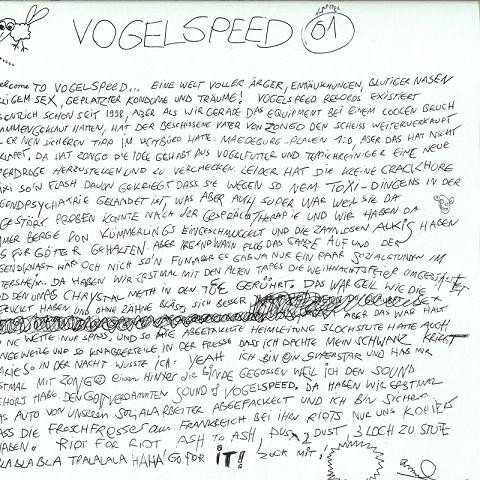 VOGELSPEED KAPITEL 01
elcome TO VOGELSPEED... EINE WELT VOLLER ÄRGER, ENTTÄUSCHUNGEN, BLUTIGER NASEN
LIGEM SEX, GEPLATZTER KONDOME UND TRÄUME! VOGELSPEED RECORDS EXISTIERT
GENTLICH SCHON SEIT 1998, ABER ALS WIR GERADE DAS EQUIPMENT BEI EINEM COOLEN BRUCH
AMMENGEKLAUT HATTEN, HAT DER BESCHISSENE VATER VON ZONGO DEN SCHEISS WEITERVERKAUFT
L ER NEN SICHEREN TIPP IM WETTBÜRO HATE. MAGDEBURG-PLAUEN 1:0, ABER DAS HAT NICHT
KLAPPT, DA HAT ZONGO DIE IDEE GEHABT AUS VOGELFUTTER UND TEPPICHREINIGER EINE NEUE
PERDROGE HERZUSTELLEN UND ZU VERCHECKEN. LEIDER HAT DIE KLEINE CRACKHORE
SO'N FLASH DAVON GEKRIEGT DASS SIE WEGEN SO NEM TOXI-DINGENS IN DER
GENDPSYCHATRIE GELANDET IST, WAS ABER AUCH SUPER WAR WEIL SIE DA
GESTÖRT PROBEN KONNTE NACH DER GESPRÄCHSTHERAPIE UND WIR HABEN DA
MER BERGE VON KÜMMERLINGS EINGESCHMUGGELT UND DIE ZAHNLOSEN ALKIS HABEN
S FÜR GÖTTER GEHALTEN. ABER IRGENDWANN FLOG DAS GANZE AUF UND DER
GENDKNAST WÄR OCH NICH SO'N FUN ABER ES GAB JA NUR EIN PAAR SOZIALSTUNDEN IM
TERSHEIM. DA HABEN WIR ERSTMAL MIT DEN ALTEN TAPES DIE WEIHNACHTSFEIER OMGESTALTET
D DEN OMAS CHRYSTAL METH IN DEN TEE GERÜHRT. DAS WAR GEIL WIE DIE
ZUCKT HABEN UND OHNE ZÄHNE BLÄST SICH BESSER
ABER DAS WAR HALT
O NE WETTE NUR SPASS, UND SO NE ABGETAKELTE HEIMLEITUNG 3LOCHSTUTE HATTE AUCH
NGEWEILE UND SO KNABBERTEILE IN DER FRESSE DASS ICH DACHTE MEIN SCHWANZ KRIEGT
ARIES. IN DER NACHT WUSSTE ICH: YEAH ICH BIN EIN SUPERSTAR UND HAB MIR
STMAL MIT ZONGO einen HINTER die BINDE GEGOSSEN WEIL ICH DEN SOUND
EHÖRT HABE: DEN GOTTVERDAMMTEN SOUND OF VOGELSPEED. DA HABEN WIR ERSTMAL
AS AUTO VON UNSEREM SOZIALARBEITER ABGEFACKELT UND ICH BIN SICHER
ASS DIE FROSCHFRESSER AUS FRANKREICH BEI IHREN RIOTS NUR UNS KOPIERT
HABEN. RIOT FOR RIOT ASH TO ASH, DUST 2 DUST, 3LOCH ZU STUTE
LABLABLA TRALALALA HAHA! GO FOR IT! ZOCK MIT!